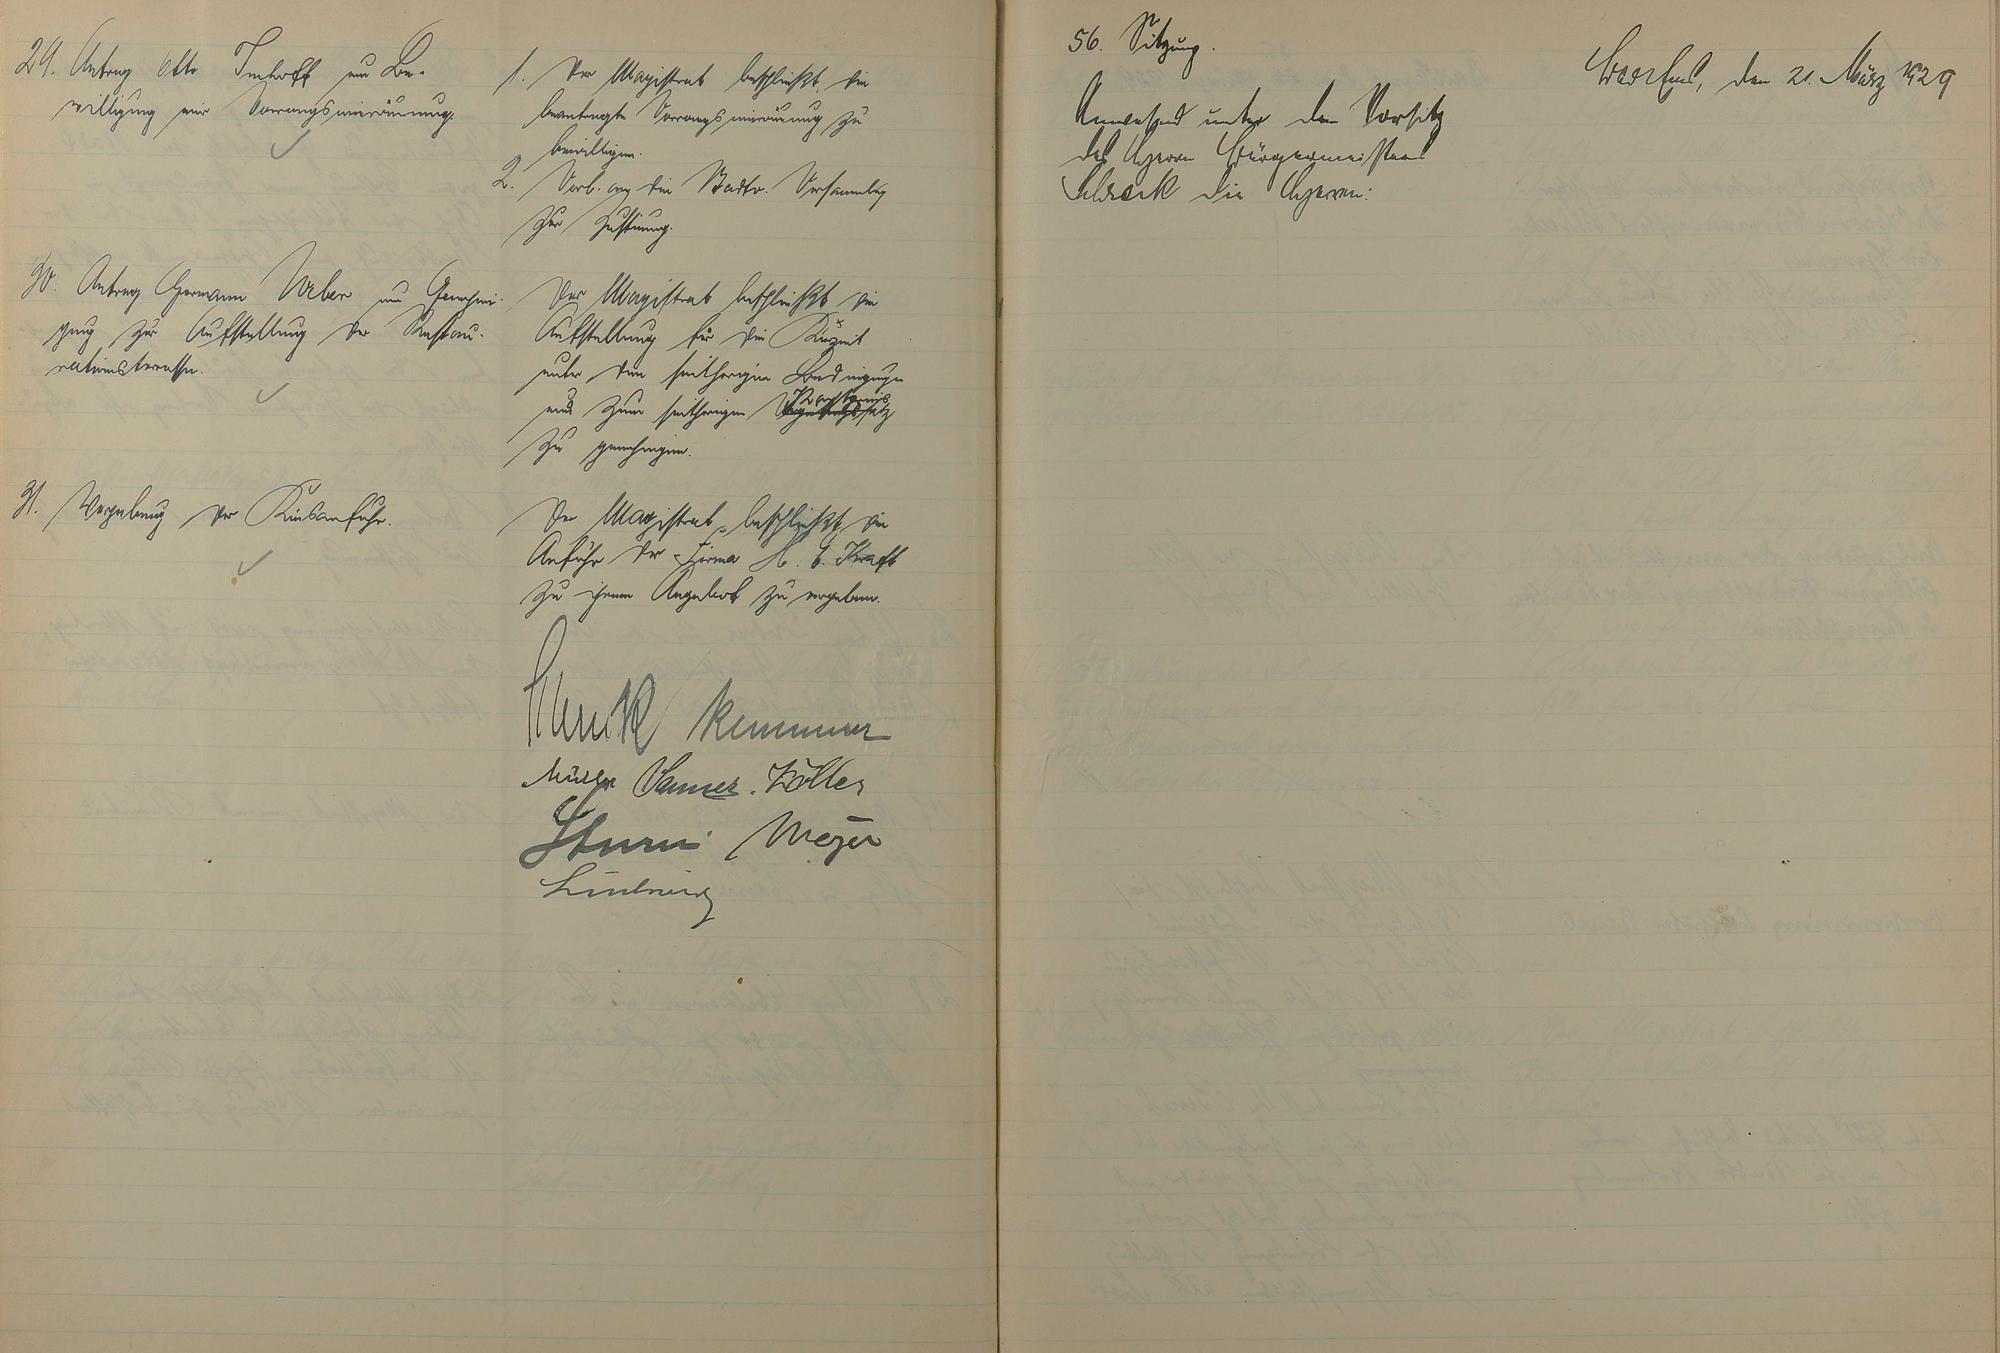 29. Antrag Otto Imhoff um Be-
willigung einer Vorrangseinräumung.
1. Der Magistrat beschließt, die
beantragte Vorrangseinräumung zu
bewilligen.
2. Vorl. an die Stadtv. Versammlung
zur Zustimmung.
30. Antrag Hermann Weber um Genehmi-
gung zur Aufstellung der Restau-
rationsterrasse.
Der Magistrat beschließt die
Aufstellung für die Kurzeit
unter den seitherigen Bedingungen
und zum seitherigen
zu genehmigen.
31. Vergebung der Kiesanfuhr.
Der Magistrat beschließt, die
Anfuhr der Firma H. C. Kraft
zu ihrem Angebot zu vergeben.
Schreck Kemmer
Müller Sanner. Zöller
Sturm Meyer
56. Sitzung.
Bad Ems, den 21. März 1929
Anwesend unter dem Vorsitz
des Herrn Bürgermeisters
Schreck die Herren: